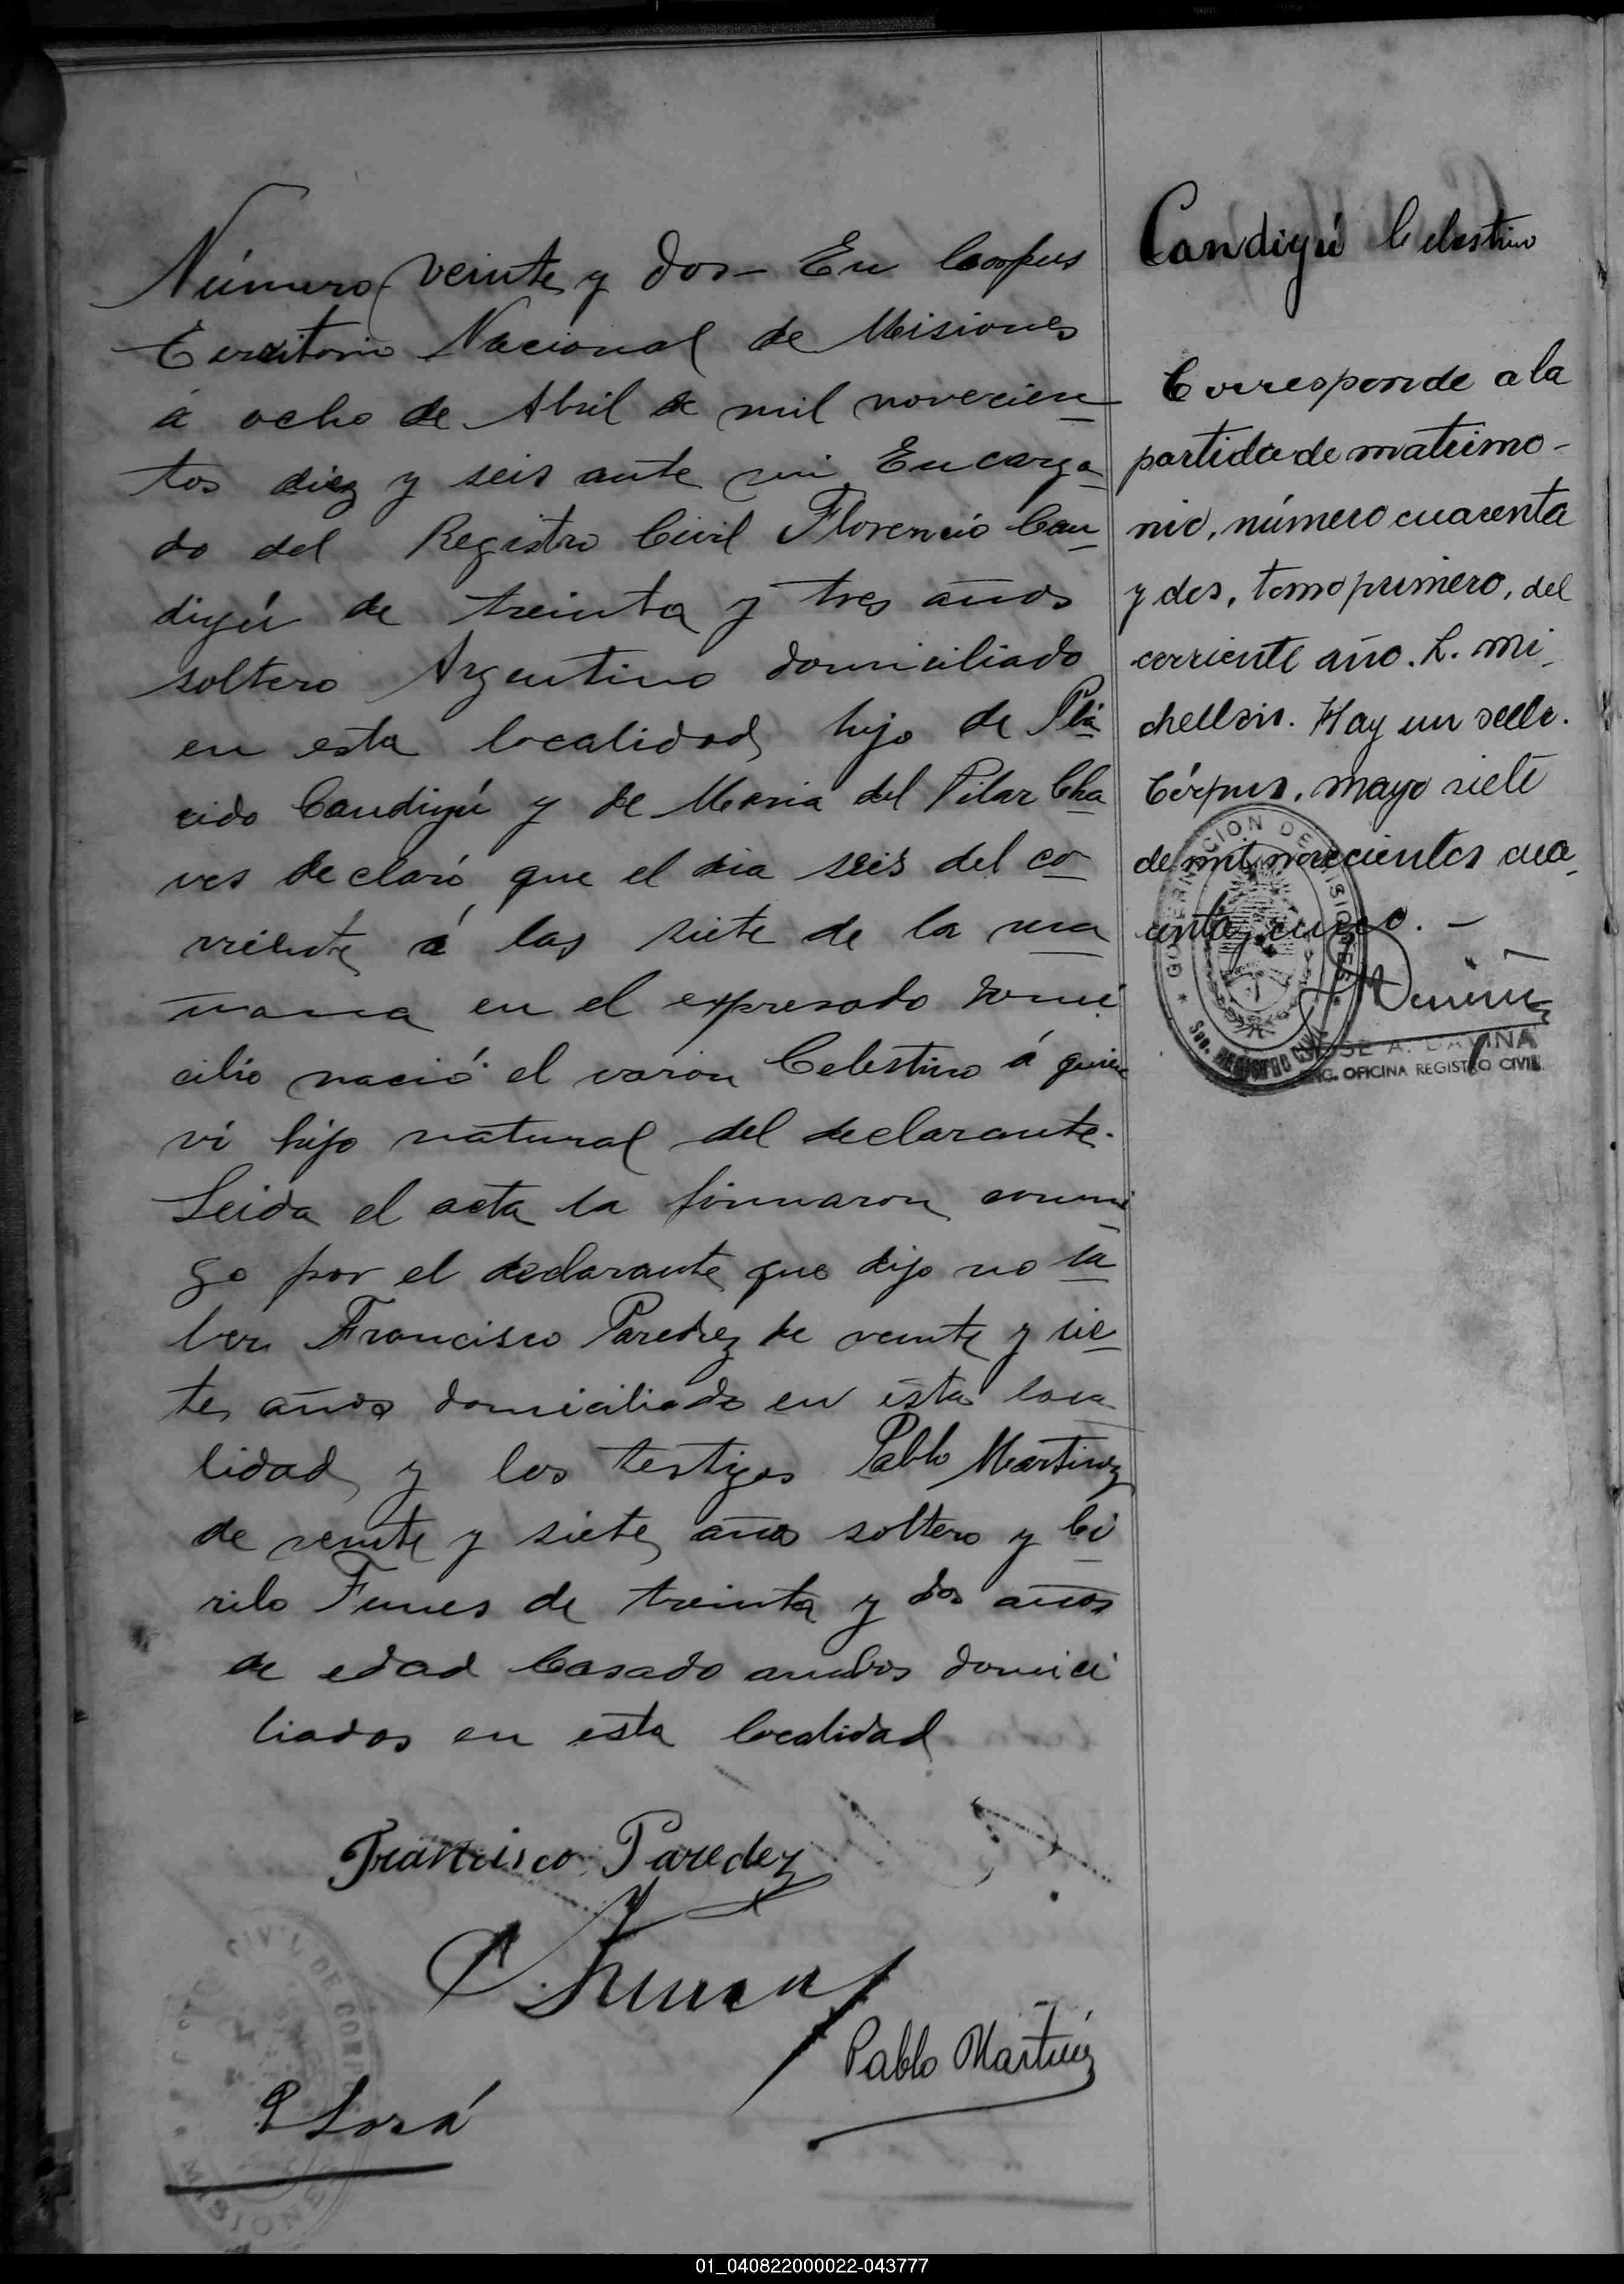 Número veinte y dos – En Corpus
Territorio Nacional de Misiones
á ocho de Abril de mil novecien-
tos diez y seis ante mi Encarga-
do del Registro Civil Florencio Can-
diyú de treinta y tres años
soltero Argentino domiciliado
en esta localidad hijo de Plá-
cido Candiyú y de Maria del Pilar Cha-
ves declaró que el dia seis del co-
rriente á las siete de la ma-
ñana en el expresado domi-
cilio nació el varon Celestino á quien
vi hijo natural del declarante.
Leida el acta la firmaron conmi-
go por el declarante que dijo no sa-
ber Francisco Paredez de veinte y sie-
te años domiciliado en esta loca-
lidad y los testigos Pablo Martinez
de veinte y siete años soltero y Ci-
rilo Funes de treinta y dos años
de edad Casado ambos domici-
liados en esta localidad
Francisco Paredez
C. Funes
Pablo Martinez
Candiyú Celestino
Corresponde a la
partida de matrimo-
nio, número cuarenta
y dos, tomo primero, del
corriente año. L. Mi-
chellon. Hay un sello.
Córpus, mayo siete
de mil novecientos cua-
renta y cinco. –
GOBERNACION DE MISIONES
Sec. REGISTRO CIVIL
JOSE A. DAVIÑA
ENC. OFICINA REGISTRO CIVIL
01_040822000022-043777